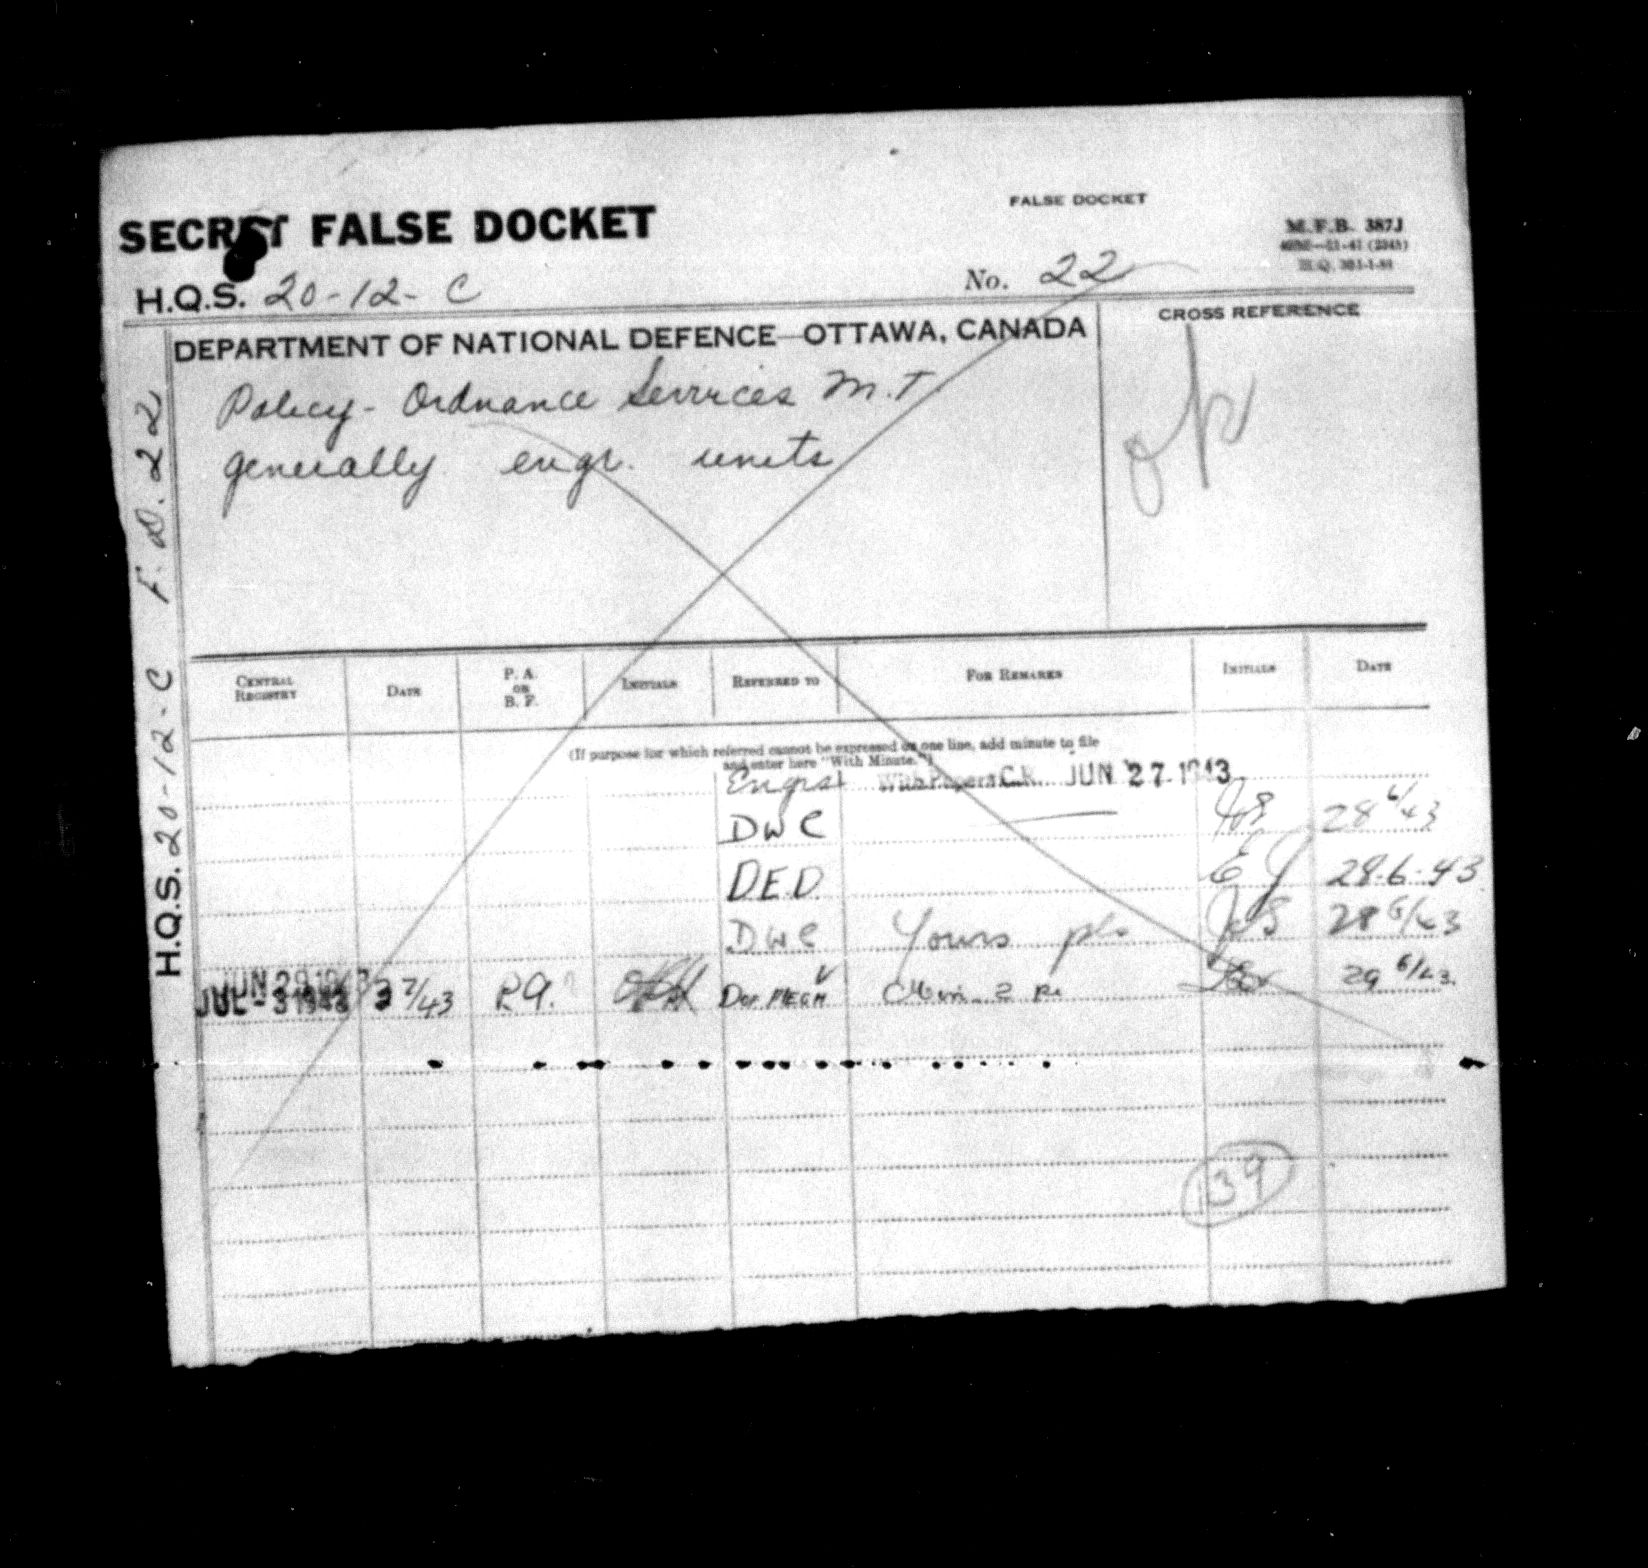 FALSE DOCKET
SECRET FALSE DOCKET
M.F.B. 387J
H.Q.S. 20-12-C
No. 22
DEPARTMENT OF NATIONAL DEFENCE—OTTAWA, CANADA
CROSS REFERENCE
Policy - Ordnance Services M.T.
generally engr. units
H.Q.S. 20-12-C F.D. 22
CENTRAL REGISTRY DATE P. A. OR B. F. INITIALS REFERRED TO FOR REMARKS INITIALS DATE
(If purpose for which referred cannot be expressed on one line, add minute to file
and enter here "With Minute.")
Engrs With Papers C.R. JUN 27 1943
DWC 28 6/43
DED EJ 28-6-43
DWC Yours pls 28 6/43
JUN 29 1943
JUL - 3 1943 3 7/43 P.A. 29 6/43
139